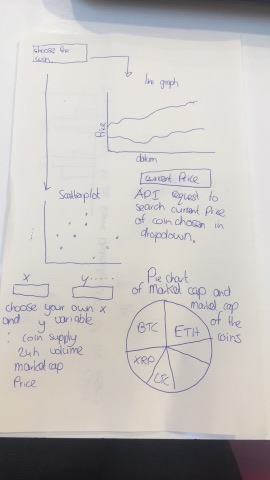 choose the
coin
line graph
Price
datum
current Price
API request to
search current Price
of coin chosen in
dropdown.
Scatterplot
x
y
choose your own x
and y variable
: coin supply
24h volume
marketcap
Price
Pie chart
of market cap and
market cap
of the
coins
BTC
ETH
XRP
LTC